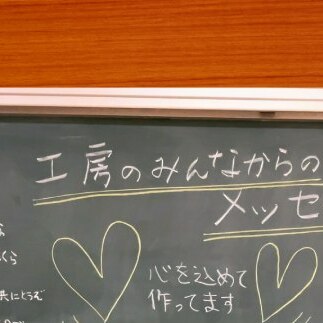 工房のみんなからの
メッセ
くら
共にどうぞ
心を込めて
作ってます